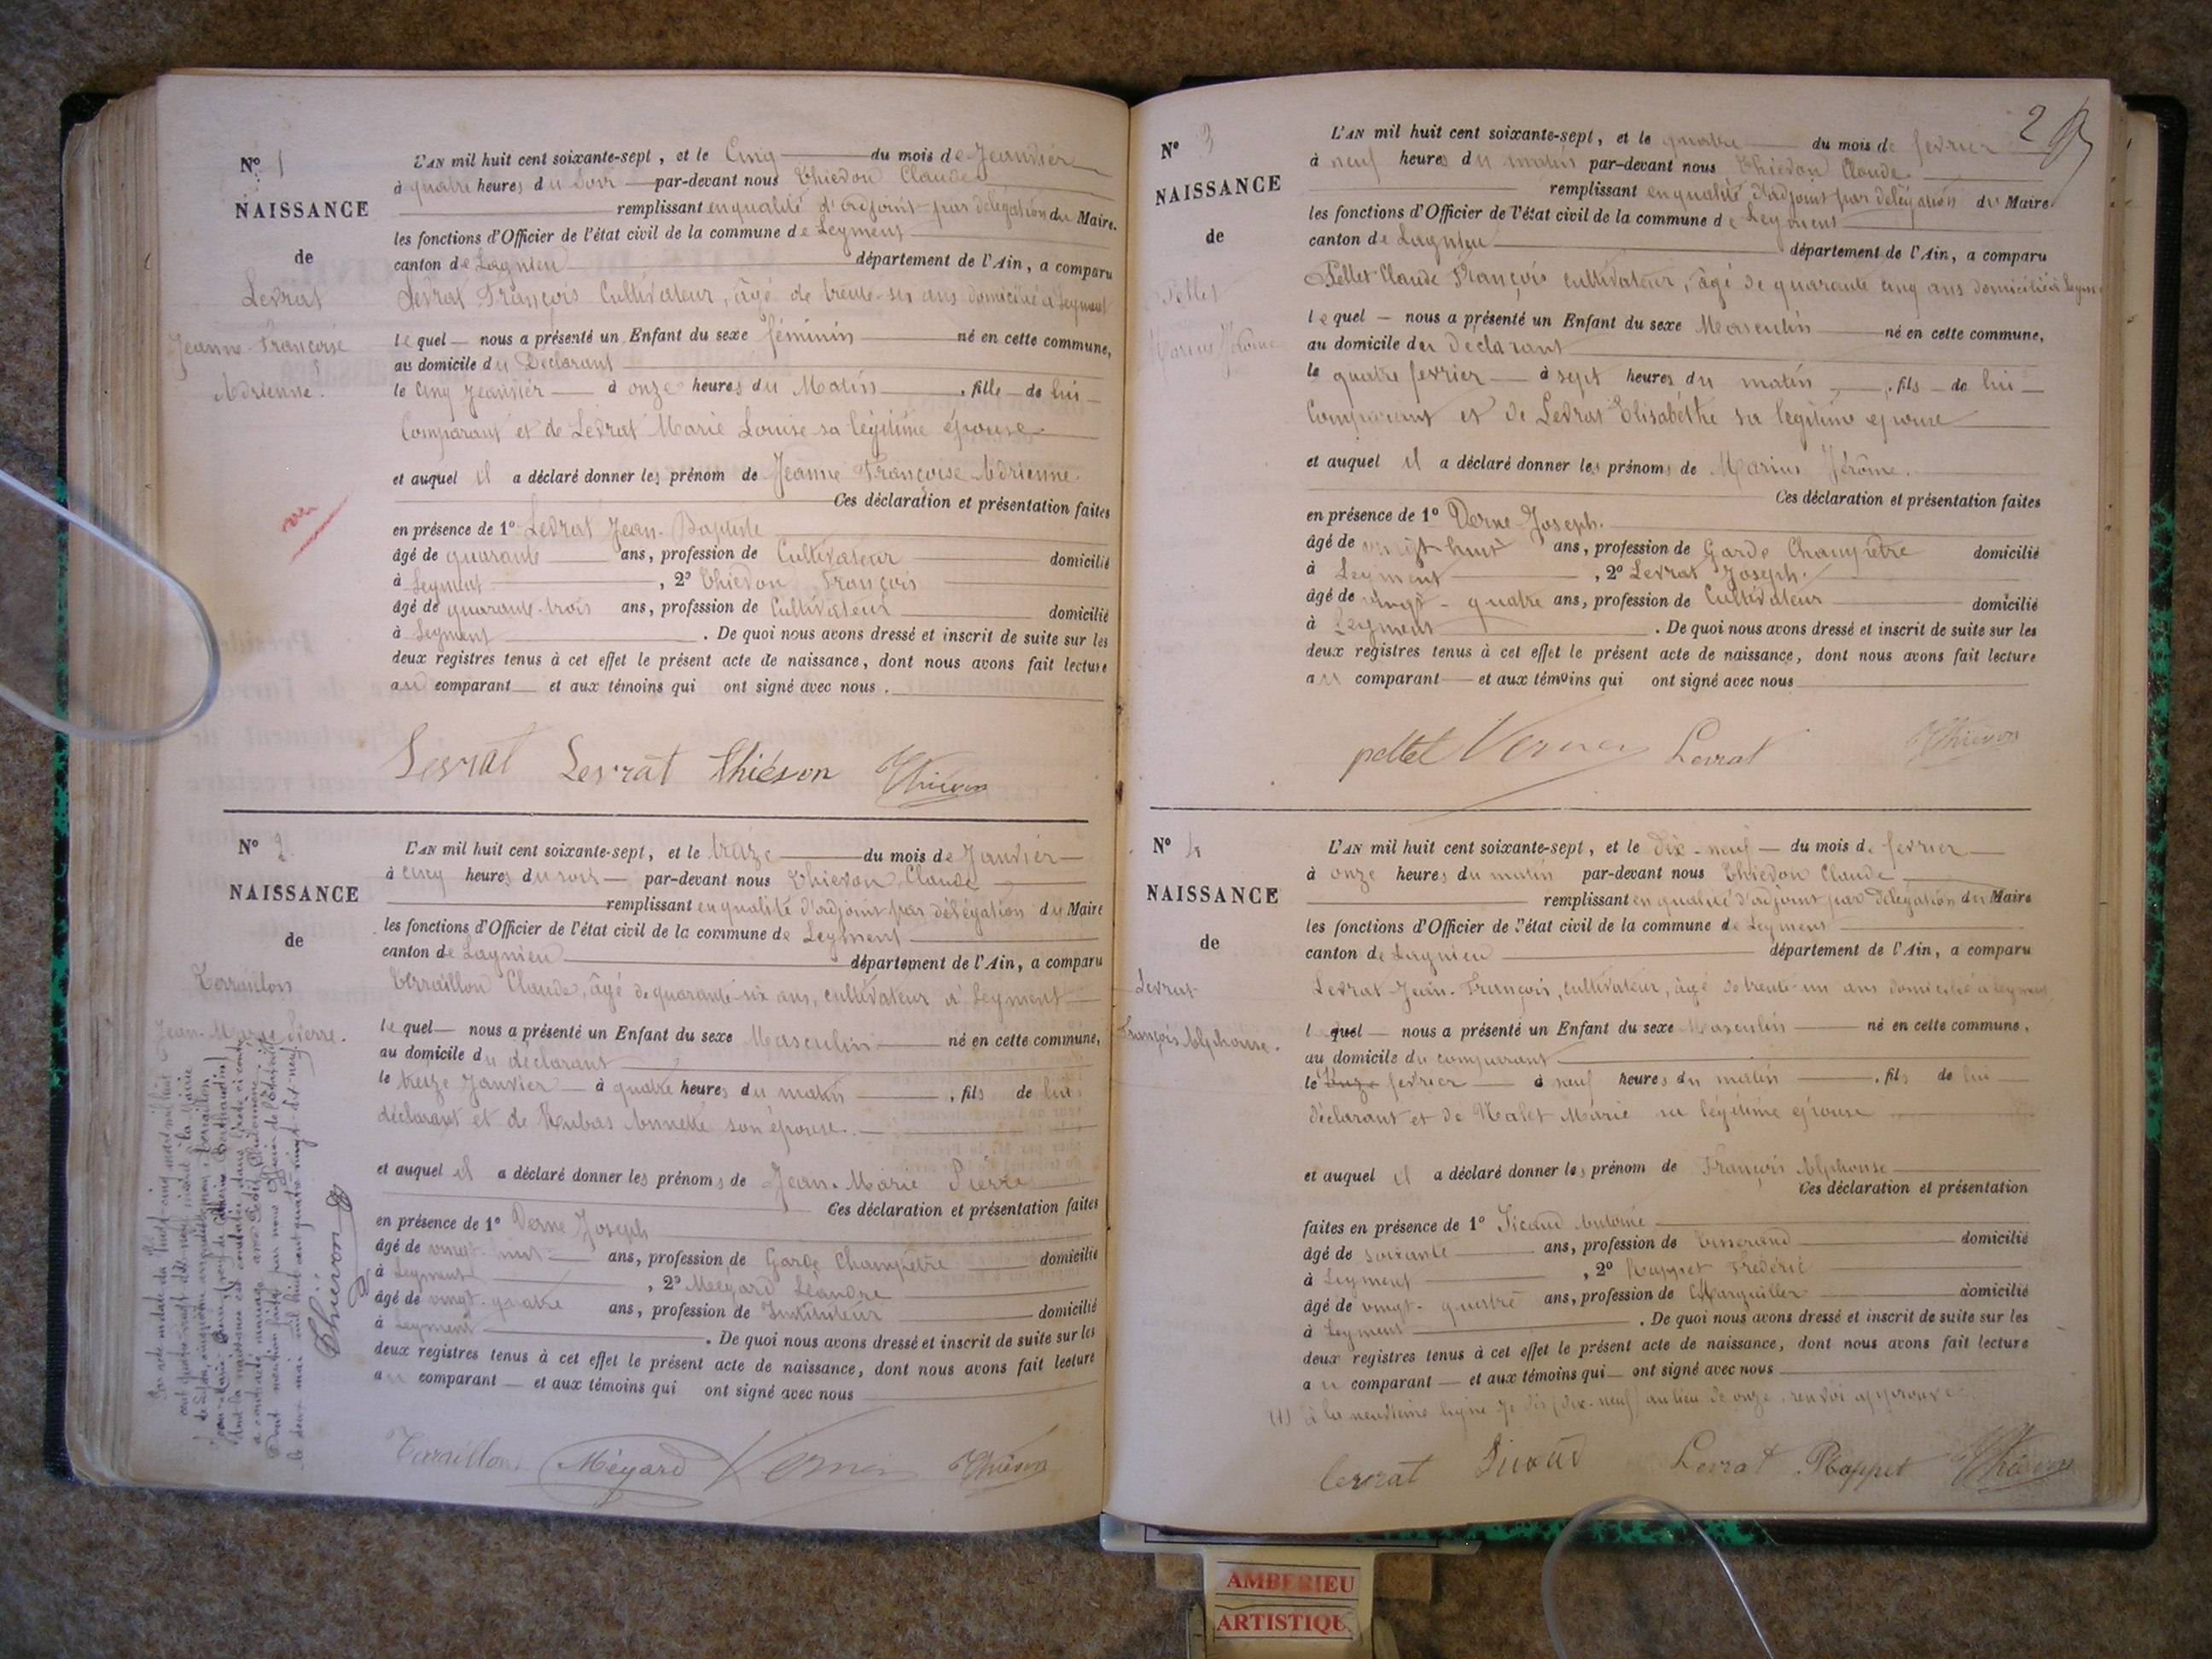 N° 1
NAISSANCE
de
Levrat
Jeanne Françoise
Adrienne.
L'AN mil huit cent soixante-sept, et le Cinq du mois de Jeanvier
à quatre heures du soir par-devant nous Thievon Claude
remplissant en qualité d'adjoint par délégation du Maire.
les fonctions d'Officier de l'état civil de la commune de Leyment
canton de Lagnieu département de l'Ain, a comparu
Levrat François Cultivateur, âgé de trente-six ans domicilié à Leyment
lequel nous a présenté un Enfant du sexe féminin né en cette commune,
au domicile du Déclarant
le Cinq Jeanvier à onze heures du Matin , fille de lui
Comparant et de Levrat Marie Louise sa légitime épouse
et auquel il a déclaré donner les prénom de Jeanne Françoise Adrienne.
Ces déclaration et présentation faites
en présence de 1° Levrat Jean-Baptiste
âgé de quarante ans, profession de Cultivateur domicilié
à Leyment , 2° Thievon François
âgé de quarante-trois ans, profession de Cultivateur domicilié
à Leyment . De quoi nous avons dressé et inscrit de suite sur les
deux registres tenus à cet effet le présent acte de naissance, dont nous avons fait lecture
au comparant et aux témoins qui ont signé avec nous.
Levrat Levrat Thiévon Thiévon
N° 2
NAISSANCE
de
Terraillon
Jean-Marie Pierre.
L'AN mil huit cent soixante-sept, et le treize du mois de Janvier
à cinq heures du soir par-devant nous Thievon Claude
remplissant en qualité d'adjoint par délégation du Maire
les fonctions d'Officier de l'état civil de la commune de Leyment
canton de Lagnieu département de l'Ain, a comparu
Terraillon Claude, âgé de quarante-six ans, cultivateur à Leyment
lequel nous a présenté un Enfant du sexe Masculin né en cette commune,
au domicile du déclarant
le treize Janvier à quatre heures du matin , fils de lui
déclarant et de Annette son épouse.
et auquel il a déclaré donner les prénoms de Jean-Marie Pierre
Ces déclaration et présentation faites
en présence de 1° Verne Joseph
âgé de vingt-huit ans, profession de Garde Champêtre domicilié
à Leyment , 2° Meygard Léandre
âgé de vingt-quatre ans, profession de Instituteur domicilié
à Leyment . De quoi nous avons dressé et inscrit de suite sur les
deux registres tenus à cet effet le présent acte de naissance, dont nous avons fait lecture
au comparant et aux témoins qui ont signé avec nous
Terraillon Mégard Verne Thiévon
Thiévon
2
N° 3
NAISSANCE
de
Pellet
Marius Jérôme
L'AN mil huit cent soixante-sept, et le quatre du mois de fevrier
à neuf heures du matin par-devant nous Thievon Claude
remplissant en qualité d'adjoint par délégation du Maire
les fonctions d'Officier de l'état civil de la commune de Leyment
canton de Lagnieu département de l'Ain, a comparu
Pellet Claude François cultivateur, âgé de quarante cinq ans domicilié à Leyment
lequel nous a présenté un Enfant du sexe Masculin né en cette commune,
au domicile du déclarant
le quatre fevrier à sept heures du matin , fils de lui
Comparant et de Levrat Elisabethe sa légitime epouse
et auquel il a déclaré donner les prénoms de Marius Jérôme.
Ces déclaration et présentation faites
en présence de 1° Verne Joseph.
âgé de vingt-huit ans, profession de Garde Champêtre domicilié
à Leyment , 2° Levrat Joseph.
âgé de vingt-quatre ans, profession de Cultivateur domicilié
à Leyment . De quoi nous avons dressé et inscrit de suite sur les
deux registres tenus à cet effet le présent acte de naissance, dont nous avons fait lecture
au comparant et aux témoins qui ont signé avec nous
pellet Verne Levrat Thiévon
N° 4
NAISSANCE
de
Levrat
François Alphonse.
L'AN mil huit cent soixante-sept, et le dix-neuf du mois de fevrier
à onze heures du matin par-devant nous Thievon Claude
remplissant en qualité d'adjoint par délégation du Maire
les fonctions d'Officier de l'état civil de la commune de Leyment
canton de Lagnieu département de l'Ain, a comparu
Levrat Jean-François, cultivateur, âgé de trente-un ans domicilié à Leyment
l quel nous a présenté un Enfant du sexe Masculin né en cette commune,
au domicile du comparant
le onze fevrier à neuf heures du matin , fils de lui
déclarant et de Marie sa légitime epouse
et auquel il a déclaré donner les prénom de François Alphonse
Ces déclaration et présentation
faites en présence de 1° Sicaud Antoine
âgé de soixante ans, profession de Tisserand domicilié
à Leyment , 2° Rappet Frédéric
âgé de vingt-quatre ans, profession de Marguiller domicilié
à Leyment . De quoi nous avons dressé et inscrit de suite sur les
deux registres tenus à cet effet le présent acte de naissance, dont nous avons fait lecture
au comparant et aux témoins qui ont signé avec nous
(1) à la neuvième ligne je dis (dix-neuf) au lieu de onze, renvoi approuvé
Levrat Sicaud Levrat Rappet Thiévon
AMBERIEU
ARTISTIQUE